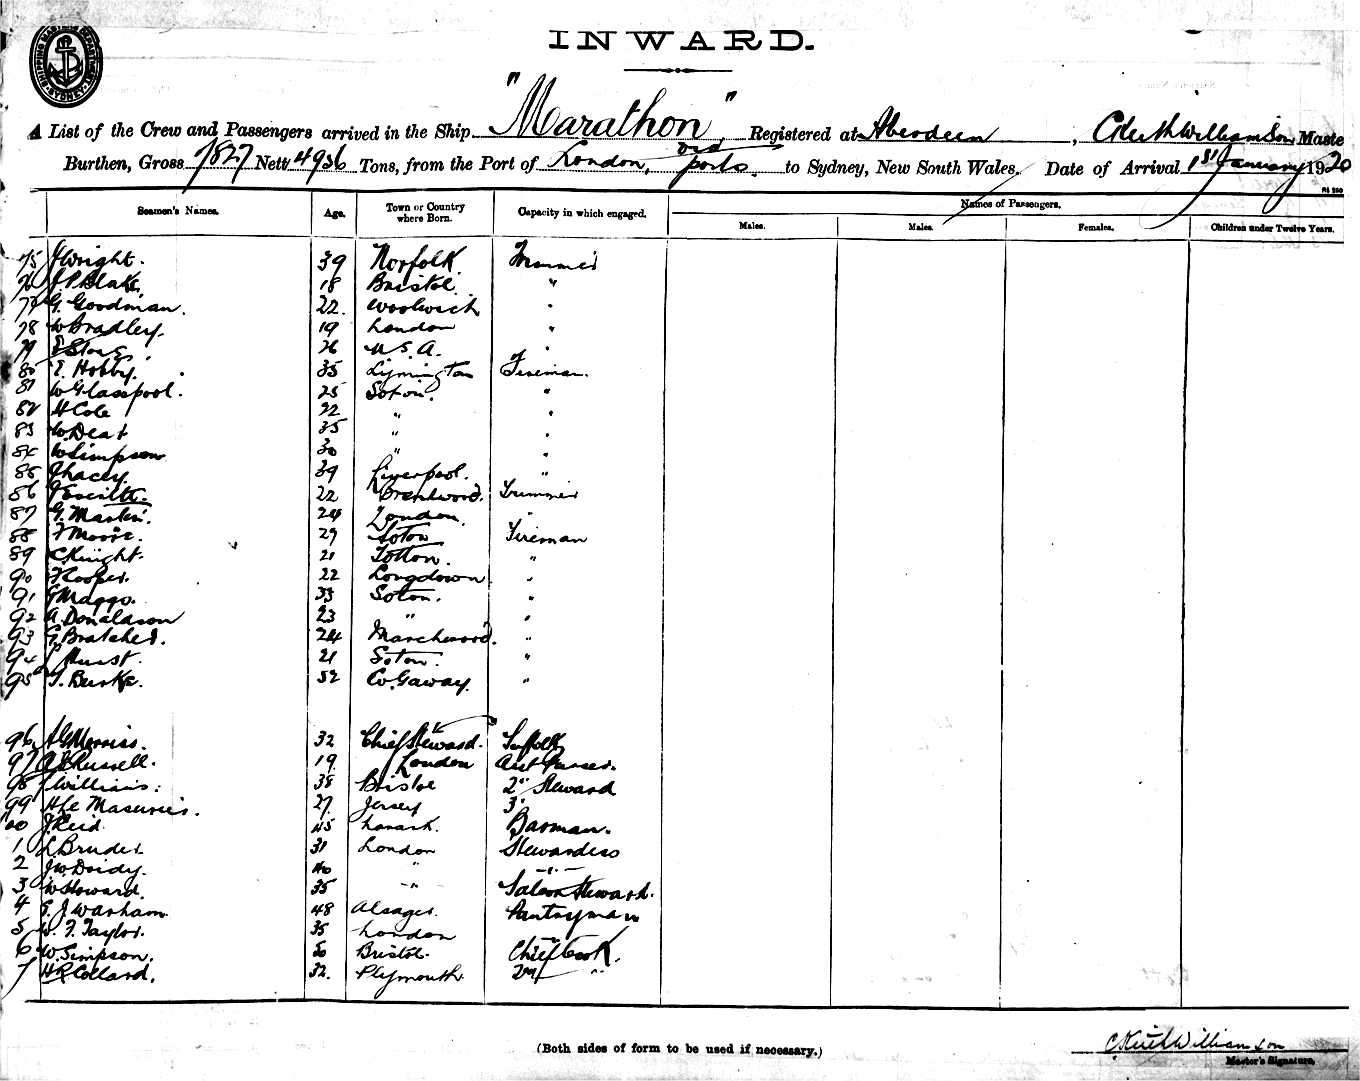 SHIPPING MASTERS DEPARTMENT SYDNEY
INWARD.
A List of the Crew and Passengers arrived in the Ship "Marathon", Registered at Aberdeen, C Keith Williamson Maste
Burthen, Gross 7827 Nett 4936 Tons, from the Port of London, and ports. to Sydney, New South Wales. Date of Arrival 1st January 1920
Seamen's Names. Age. Town or Country where Born. Capacity in which engaged. Names of Passengers.
Males. Males. Females. Children under Twelve Years.
75 J Wright. 39 Norfolk Trimmer
76 J P Blake, 18 Bristol "
77 G. Goodman. 22. Woolwich "
78 W Bradley. 19 London "
79 26 U S. A. "
80 E. Hobby. 35 Lymington Fireman.
81 W Glasspool. 25 Soton. "
82 H Cole 22 " "
83 W. Deat 35 " "
84 W Simpson 30 " "
85 J Lacey 39 Liverpool. "
86 22 Brentwood. Trimmer
87 G. Martin. 24 London. "
88 F Moore. 29 Soton Fireman
89 C Knight. 21 Totton. "
90 F Cooper. 22 Longdown "
91 33 Soton. "
92 A. Donaldson 23 " "
93 G. Bratcher. 24 Marchwood. "
94 Hurst. 21 Soton. "
95 T. Burke. 52 Co. Gaway. "
96 A G Morriss. 32 Chief Steward. Suffolk
97 Russell. 19 London Asst Purser.
98 J Williams. 38 Bristol 2nd Steward
99 H Le Masurier. 27. Jersey 3rd "
00 J. Reid 45 Lanark. Barman.
1 L. Bruder 31 London Stewardess
2 J W Doidy. 40 " "
3 W Howard. 35 " Saloon Steward.
4 E. J Warham 48 Alsager. Pantryman
5 W. F. Taylor. 35 London "
6 W. Simpson. 50 Bristol. Chief Cook.
7 H R Collard. 32. Plymouth. 2nd "
(Both sides of form to be used if necessary.)
C Keith Williamson
Master's Signature.